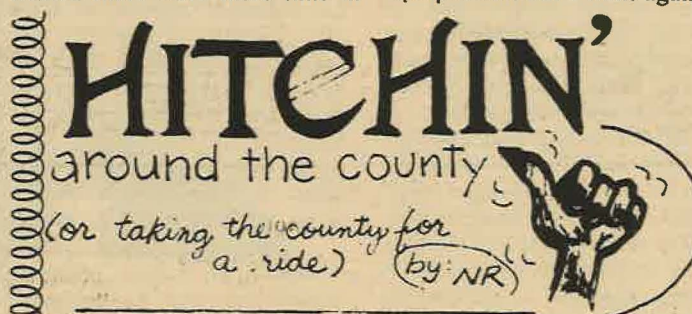 HITCHIN'
around the county
(or taking the county for
a ride) by: NR